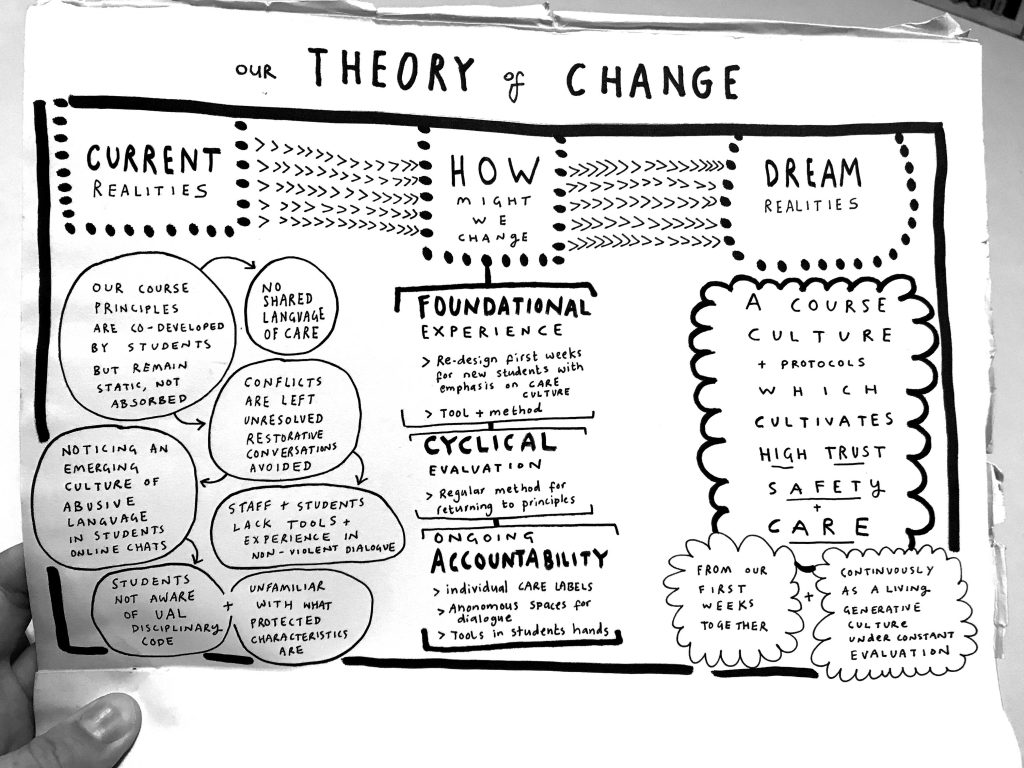 OUR THEORY of CHANGE
CURRENT
REALITIES
HOW
MIGHT
WE
CHANGE
DREAM
REALITIES
OUR COURSE
PRINCIPLES
ARE CO-DEVELOPED
BY STUDENTS
BUT REMAIN
STATIC, NOT
ABSORBED
NO
SHARED
LANGUAGE
OF CARE
CONFLICTS
ARE LEFT
UNRESOLVED
RESTORATIVE
CONVERSATIONS
AVOIDED
NOTICING AN
EMERGING
CULTURE OF
ABUSIVE
LANGUAGE
IN STUDENTS
ONLINE CHATS
STAFF + STUDENTS
LACK TOOLS +
EXPERIENCE IN
NON-VIOLENT DIALOGUE
STUDENTS
NOT AWARE
OF UAL
DISCIPLINARY
CODE
+
UNFAMILIAR
WITH WHAT
PROTECTED
CHARACTERISTICS
ARE
FOUNDATIONAL
EXPERIENCE
> Re-design first weeks
for new students with
emphasis on CARE
CULTURE
> Tool + method
CYCLICAL
EVALUATION
> Regular method for
returning to principles
ONGOING
ACCOUNTABILITY
> individual CARE LABELS
> Anonomous spaces for
dialogue
> Tools in students hands
A COURSE
CULTURE
+ PROTOCOLS
WHICH
CULTIVATES
HIGH TRUST
SAFETY
+
CARE
FROM OUR
FIRST
WEEKS
TOGETHER
+
CONTINUOUSLY
AS A LIVING
GENERATIVE
CULTURE
UNDER CONSTANT
EVALUATION